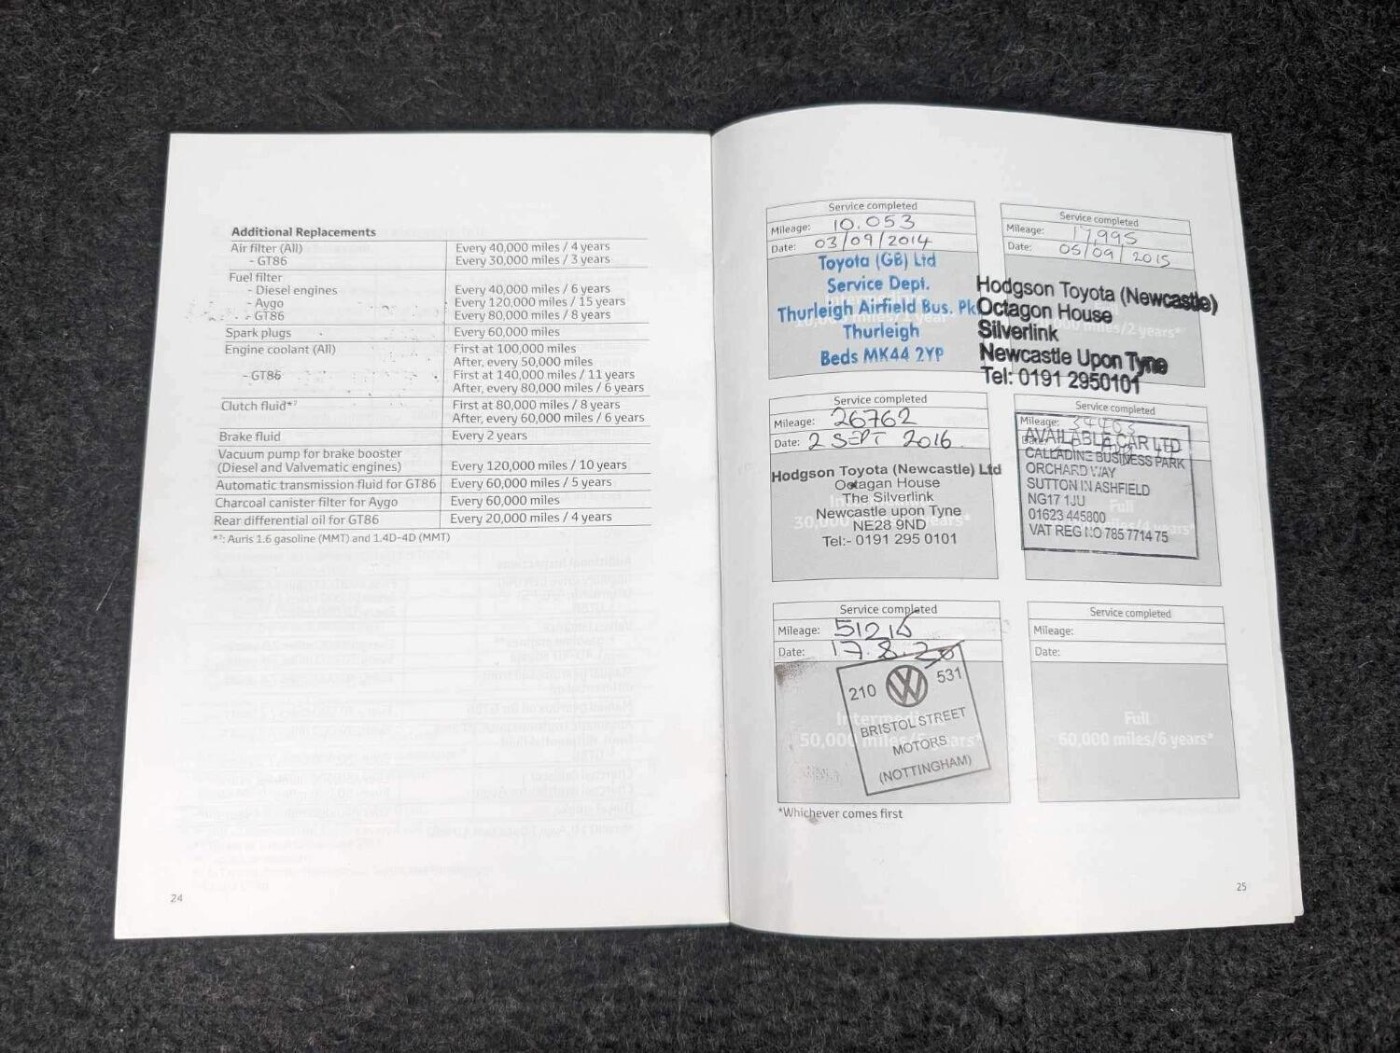 Additional Replacements
Air filter (All) Every 40,000 miles / 4 years
- GT86 Every 30,000 miles / 3 years
Fuel filter
- Diesel engines Every 40,000 miles / 6 years
- Aygo Every 120,000 miles / 15 years
- GT86 Every 80,000 miles / 8 years
Spark plugs Every 60,000 miles
Engine coolant (All) First at 100,000 miles
After, every 50,000 miles
- GT86 First at 140,000 miles / 11 years
After, every 80,000 miles / 6 years
Clutch fluid*² First at 80,000 miles / 8 years
After, every 60,000 miles / 6 years
Brake fluid Every 2 years
Vacuum pump for brake booster
(Diesel and Valvematic engines) Every 120,000 miles / 10 years
Automatic transmission fluid for GT86 Every 60,000 miles / 5 years
Charcoal canister filter for Aygo Every 60,000 miles
Rear differential oil for GT86 Every 20,000 miles / 4 years
*²: Auris 1.6 gasoline (MMT) and 1.4D-4D (MMT)
24
Service completed
Mileage: 10.053
Date: 03/09/2014
Toyota (GB) Ltd
Service Dept.
Thurleigh Airfield Bus. Pk
Thurleigh
Beds MK44 2YP
Service completed
Mileage: 17,995
Date: 05/09/2015
Hodgson Toyota (Newcastle)
Octagon House
Silverlink
miles/2 years*
Newcastle Upon Tyne
Tel: 0191 2950101
Service completed
Mileage: 26762
Date: 2 SEPT 2016
Hodgson Toyota (Newcastle) Ltd
Octagan House
The Silverlink
Newcastle upon Tyne
NE28 9ND
Tel:- 0191 295 0101
30,000
Service completed
Mileage: 34403
AVAILABLE CAR LTD
CALLADINE BUSINESS PARK
ORCHARD WAY
SUTTON IN ASHFIELD
NG17 1JU
Full
01623 445800
VAT REG NO 785 7714 75
Service completed
Mileage: 51215
Date: 17.8.20
210 VW 531
Intermediate
BRISTOL STREET
50,000 miles/5 years*
MOTORS
(NOTTINGHAM)
Service completed
Mileage:
Date:
Full
60,000 miles/6 years*
*Whichever comes first
25